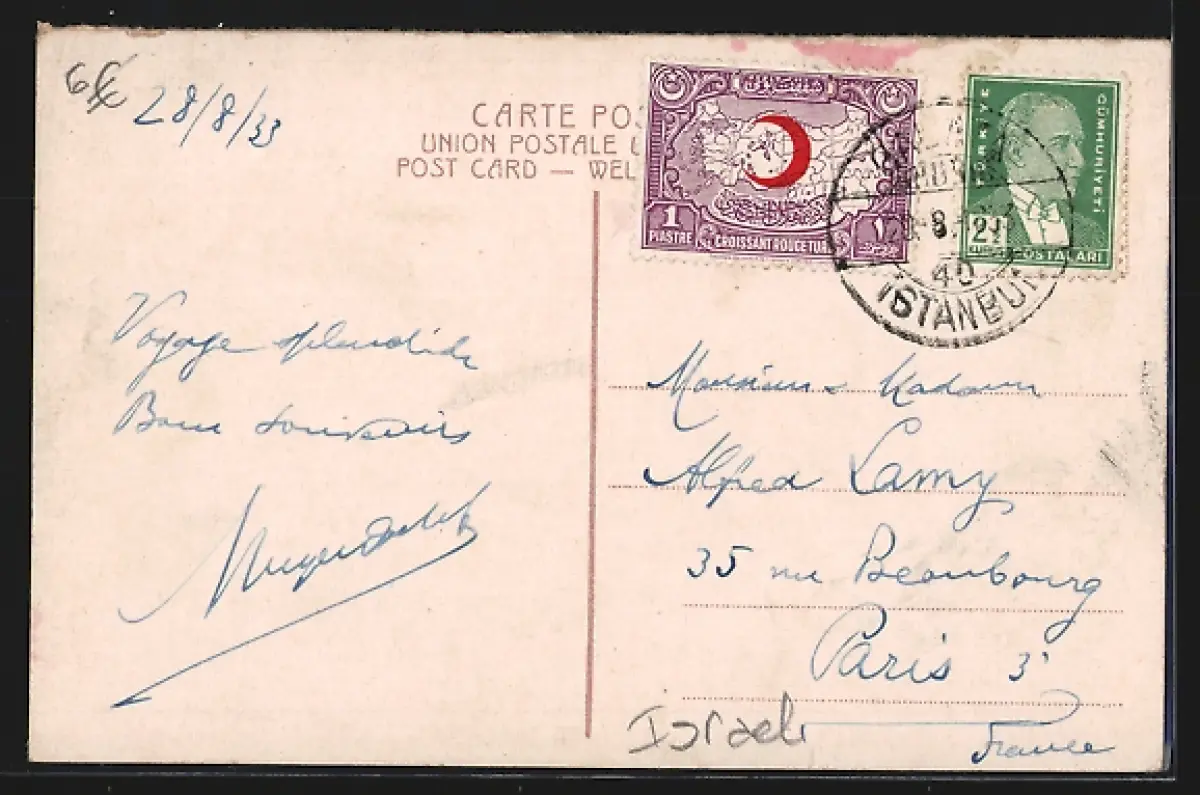 28/8/33
CARTE POS
UNION POSTALE
POST CARD — WEL
1
PIASTRE
CROISSANT ROUGE TURC
TÜRKİYE
CÜMHURİYETİ
2½
POSTALARI
8
40
İSTANBUL
Voyage splendide
Bons souvenirs
Monsieur & Madame
Alfred Lamy
35 rue Beaubourg
Paris 3ᵉ
France
Israel